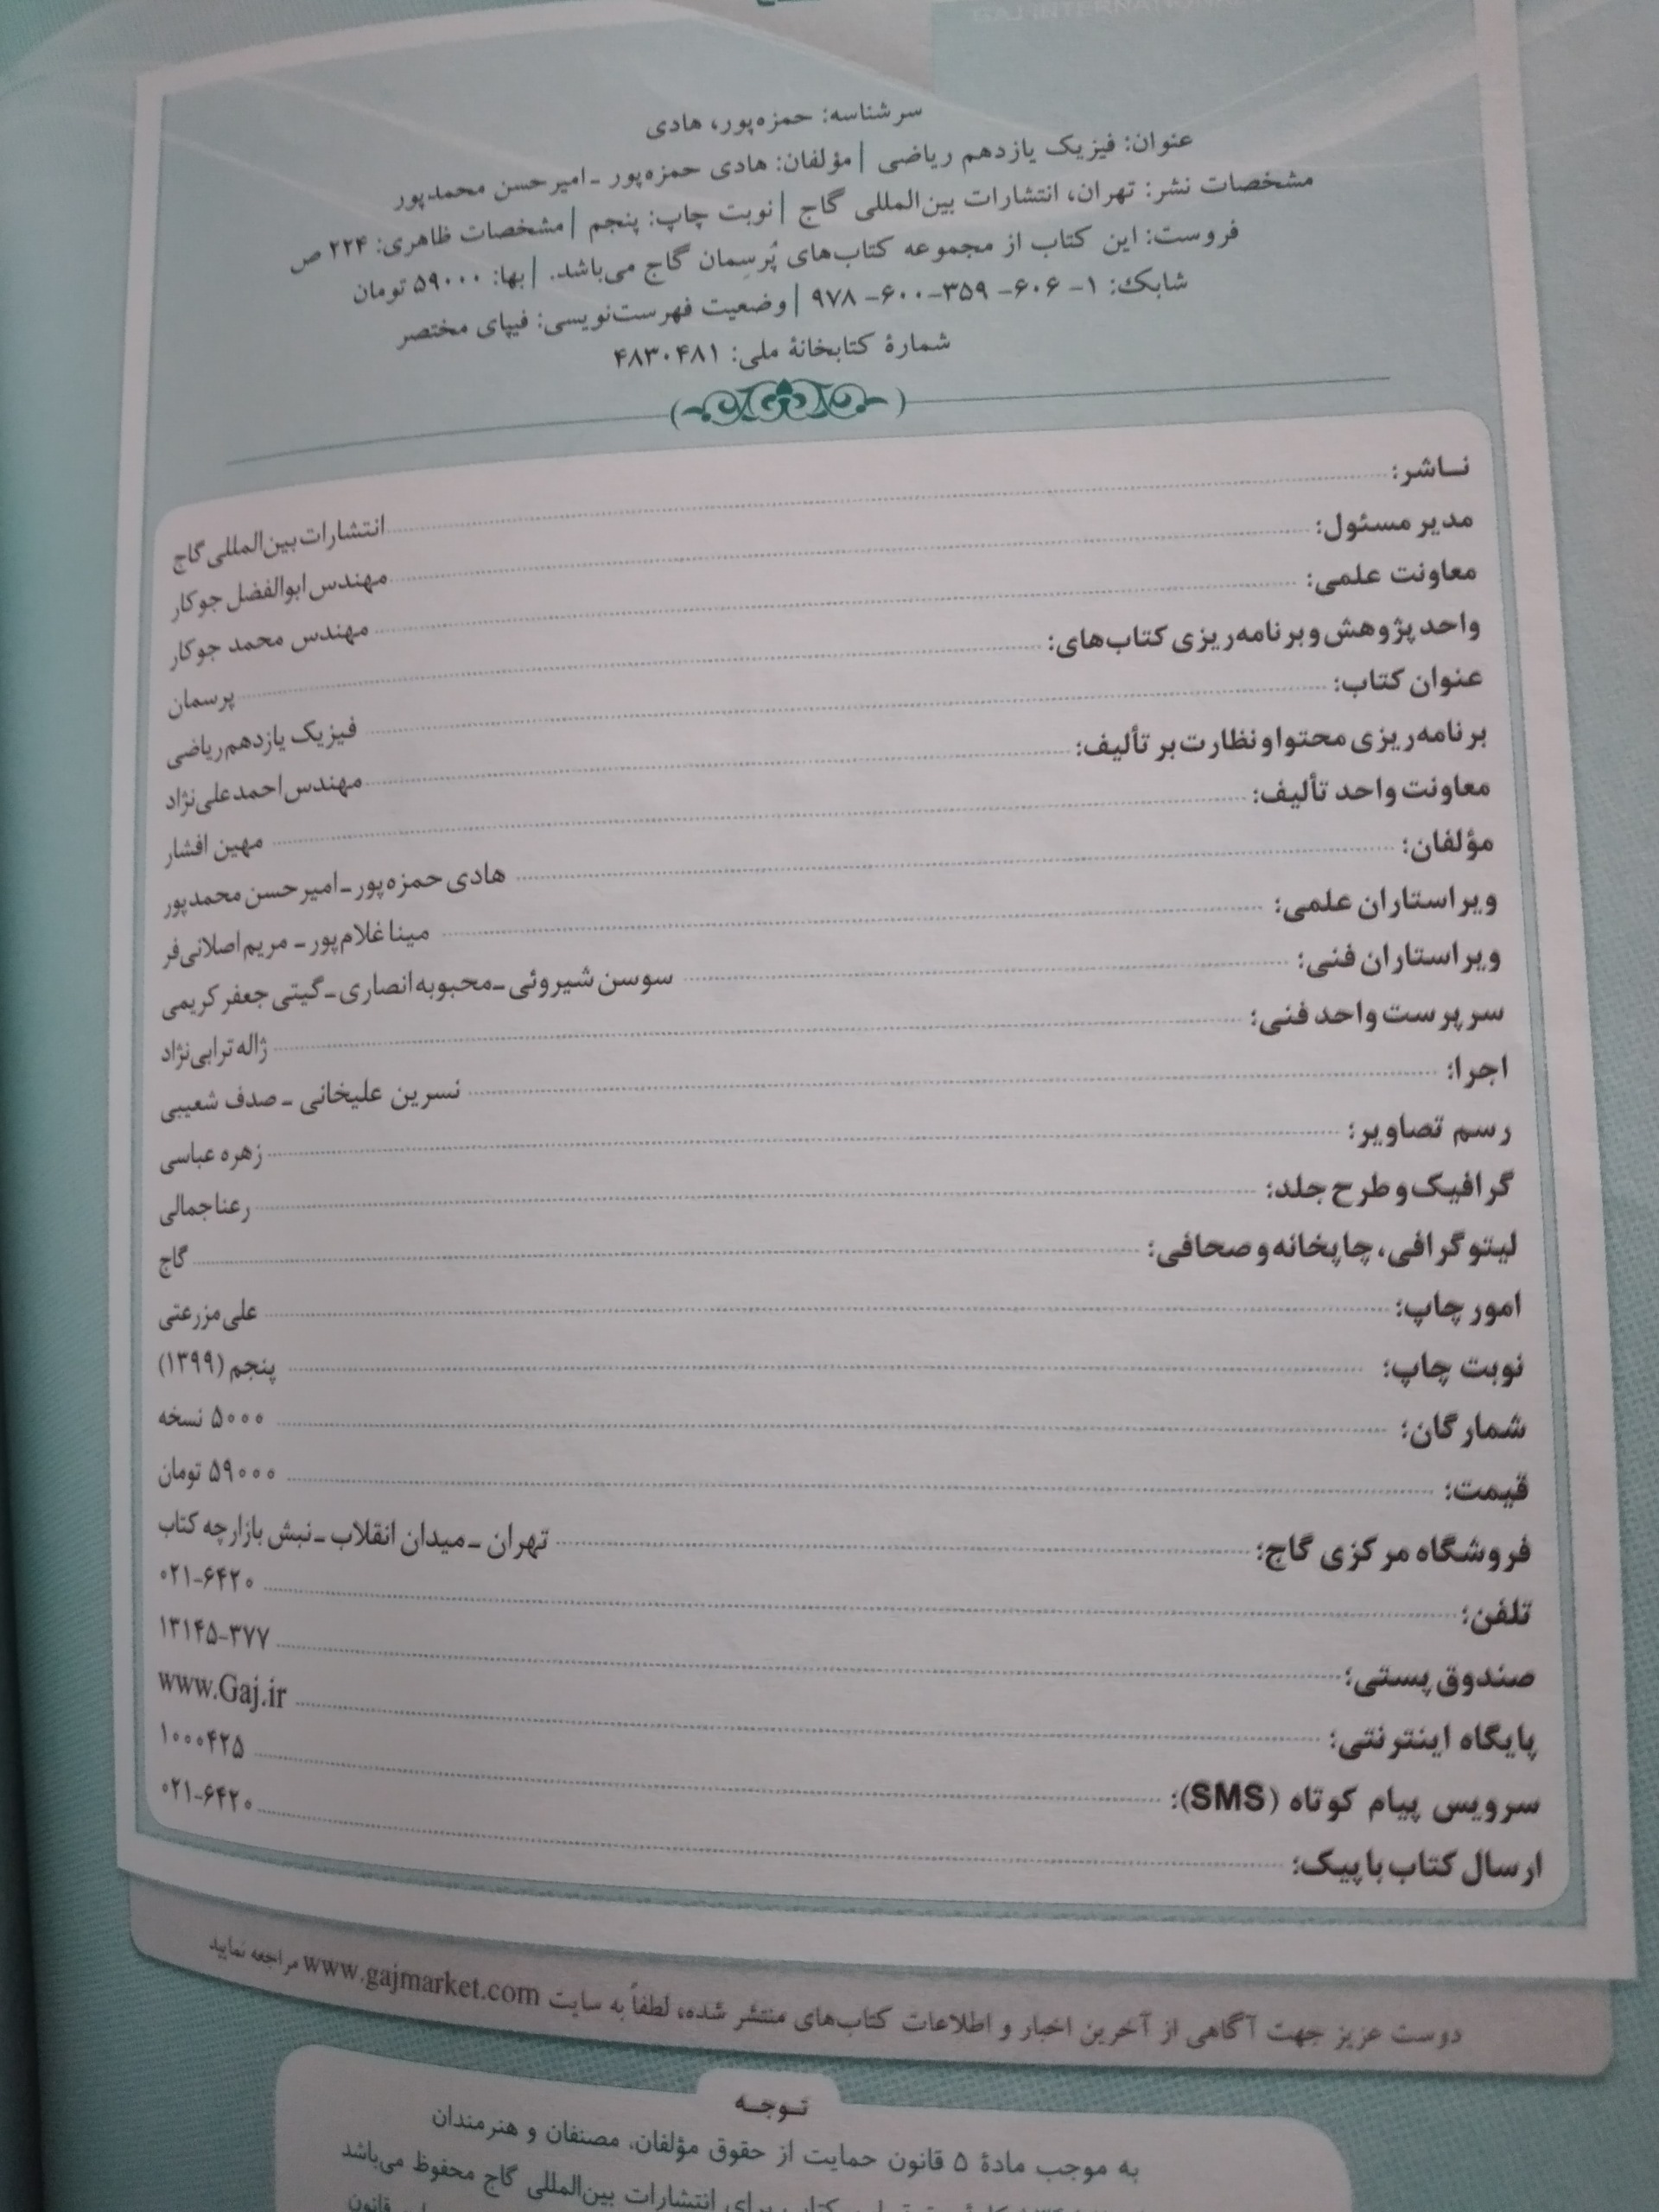 GAJ INTERNATIONAL
سرشناسه: حمزه‌پور، هادی
عنوان: فیزیک یازدهم ریاضی | مؤلفان: هادی حمزه‌پور ـ امیرحسن محمدپور
مشخصات نشر: تهران، انتشارات بین‌المللی گاج | نوبت چاپ: پنجم | مشخصات ظاهری: ۲۲۴ ص
فروست: این کتاب از مجموعه کتاب‌های پُرسِمان گاج می‌باشد. | بها: ۵۹۰۰۰ تومان
شابک: ۱- ۶۰۶- ۳۵۹-۶۰۰- ۹۷۸ | وضعیت فهرست‌نویسی: فیپای مختصر
شمارهٔ کتابخانهٔ ملی: ۴۸۳۰۴۸۱
نـاشر: انتشارات بین‌المللی گاج
مدیر مسئول: مهندس ابوالفضل جوکار
معاونت علمی: مهندس محمد جوکار
واحد پژوهش و برنامه‌ریزی کتاب‌های: پرسمان
عنوان کتاب: فیزیک یازدهم ریاضی
برنامه‌ریزی محتوا و نظارت بر تألیف: مهندس احمد علی‌نژاد
معاونت واحد تألیف: مهین افشار
مؤلفان: هادی حمزه‌پور ـ امیرحسن محمدپور
ویراستاران علمی: مینا غلام‌پور ـ مریم اصلانی‌فر
ویراستاران فنی: سوسن شیروئی ـ محبوبه انصاری ـ گیتی جعفرکریمی
سرپرست واحد فنی: ژاله ترابی‌نژاد
اجرا: نسرین علیخانی ـ صدف شعیبی
رسم تصاویر: زهره عباسی
گرافیک و طرح جلد: رعنا جمالی
لیتوگرافی، چاپخانه و صحافی: گاج
امور چاپ: علی مزرعتی
نوبت چاپ: پنجم (۱۳۹۹)
شمارگان: ۵۰۰۰ نسخه
قیمت: ۵۹۰۰۰ تومان
فروشگاه مرکزی گاج: تهران ـ میدان انقلاب ـ نبش بازارچه کتاب
تلفن: ۰۲۱-۶۴۲۰
صندوق پستی: ۱۳۱۴۵-۳۷۷
پایگاه اینترنتی: www.Gaj.ir
سرویس پیام کوتاه (SMS): ۱۰۰۰۴۲۵
ارسال کتاب با پیک: ۰۲۱-۶۴۲۰
دوست عزیز جهت آگاهی از آخرین اخبار و اطلاعات کتاب‌های منتشر شده، لطفاً به سایت www.gajmarket.com مراجعه نمایید
تـوجـه
به موجب مادهٔ ۵ قانون حمایت از حقوق مؤلفان، مصنفان و هنرمندان
کتاب برای انتشارات بین‌المللی گاج محفوظ می‌باشد
قانون